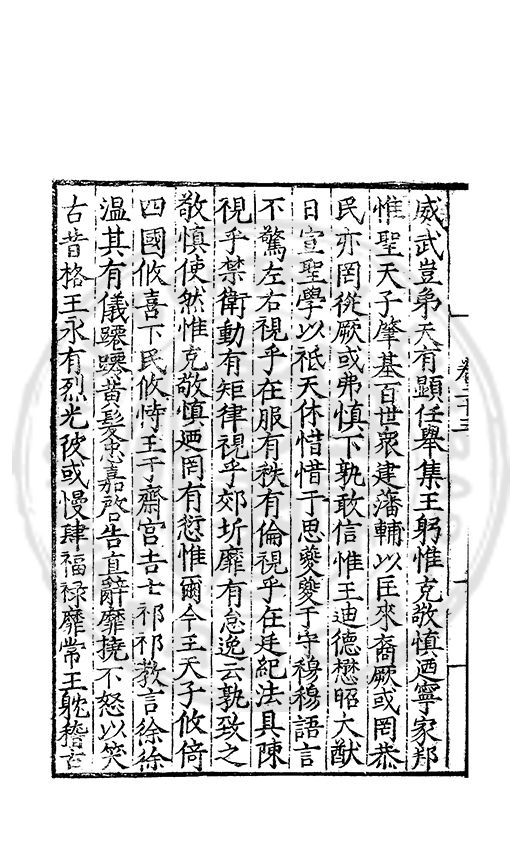 威武豈弟天有顯任舉集王躬惟克敬慎廼寧家邦
惟聖天子肇基百世衆建藩輔以匡來裔厥或罔恭
民亦罔從厥或弗慎下孰敢信惟王迪德懋昭大猷
日宣聖學以祗天休惜惜于思夔夔于守穆穆語言
不驚左右視乎在服有秩有倫視乎在廷紀法具陳
視乎禁衛動有矩律視乎郊圻靡有怠逸云孰致之
敬慎使然惟克敬慎廼罔有愆惟爾今王天子攸倚
四國攸喜下民攸恃王于齋宮吉士祁祁教言徐徐
温其有儀蹮蹮黃髮忠嘉啓告直辭靡撓不怒以笑
古昔格王永有烈光彼或慢肆福祿靡常王躭稽古
卷二十三